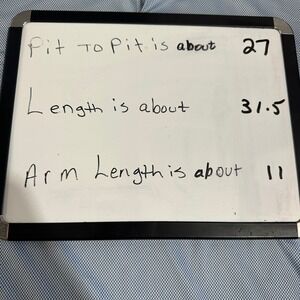 Pit To Pit is about 27
Length is about 31.5
Arm Length is about 11